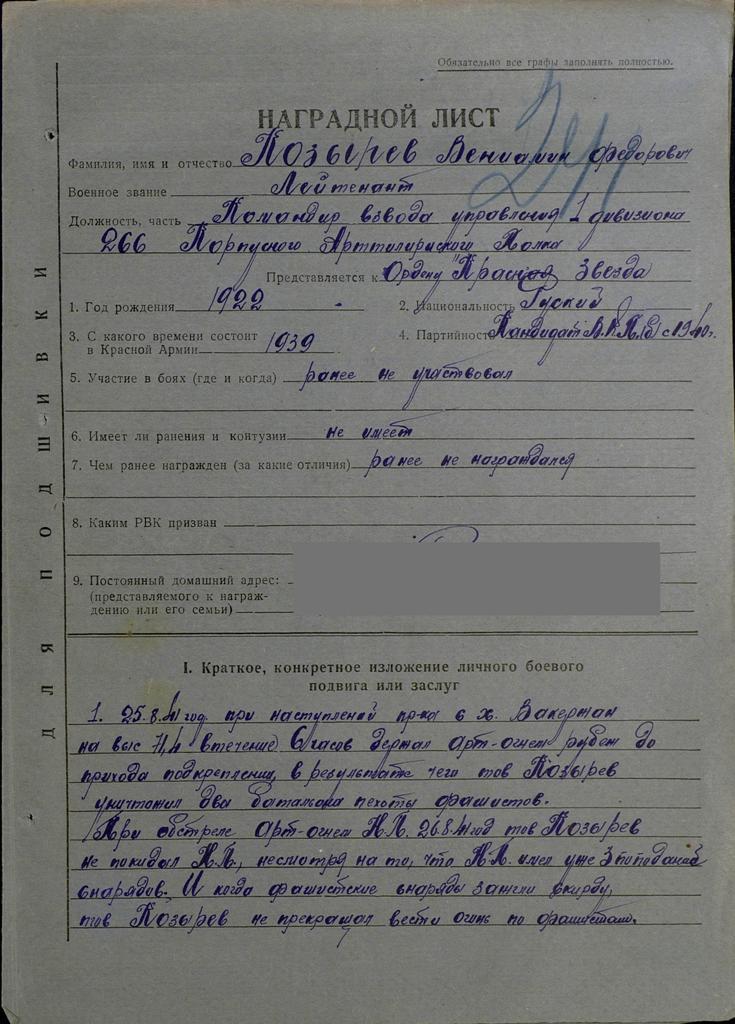 Обязательно все графы заполнять полностью.
НАГРАДНОЙ ЛИСТ
Фамилия, имя и отчество Козырев Вениамин Федорович
Военное звание Лейтенант
Должность, часть Командир взвода управления 1 дивизиона
266 Корпусного Арттилериского Полка
Представляется к Ордену "Красная Звезда
1. Год рождения 1922 2. Национальность Руский
3. С какого времени состоит
в Красной Армии 1939 4. Партийность Кандидат В.К.П.(б) с 1940г.
5. Участие в боях (где и когда) ранее не участвовал
6. Имеет ли ранения и контузии не имеет
7. Чем ранее награжден (за какие отличия) ранее не награждался
8. Каким РВК призван
9. Постоянный домашний адрес:
(представляемого к награж-
дению или его семьи)
I. Краткое, конкретное изложение личного боевого
подвига или заслуг
1. 25.8.41 год. при наступлений пр-ка в х. Вакержан
на выс 71,4 втечение 6 часов держал арт-огнем рубеж до
прихода подкреплении, в результате чего тов Козырев
уничтожил два баталиона пехоты фашистов.
При обстреле арт-огнем Н.П. 26.8.41 год тов Козырев
не покидал Н.П., несмотря на то, что Н.П. имел уже 3 попаданий
снарядов. И когда фашистские снаряды зажгли скирду,
тов Козырев не прекращал вести огонь по фашистам.
ДЛЯ ПОДШИВКИ
24